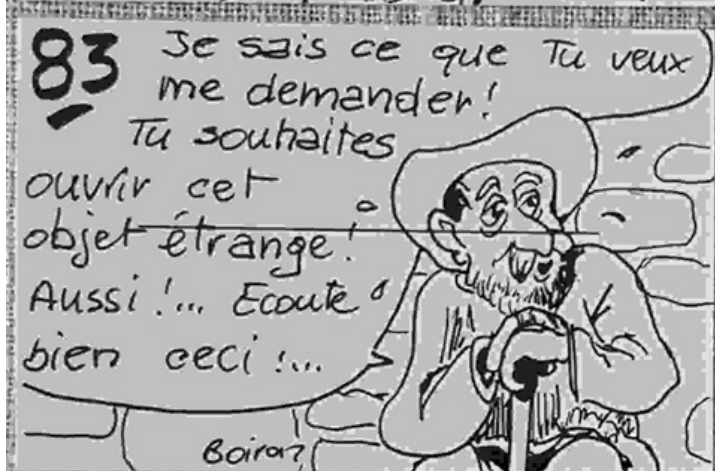 83 Je sais ce que Tu veux
me demander!
Tu souhaites
ouvrir cet
objet étrange!
Aussi!... Ecoute
bien ceci!...
Boiron